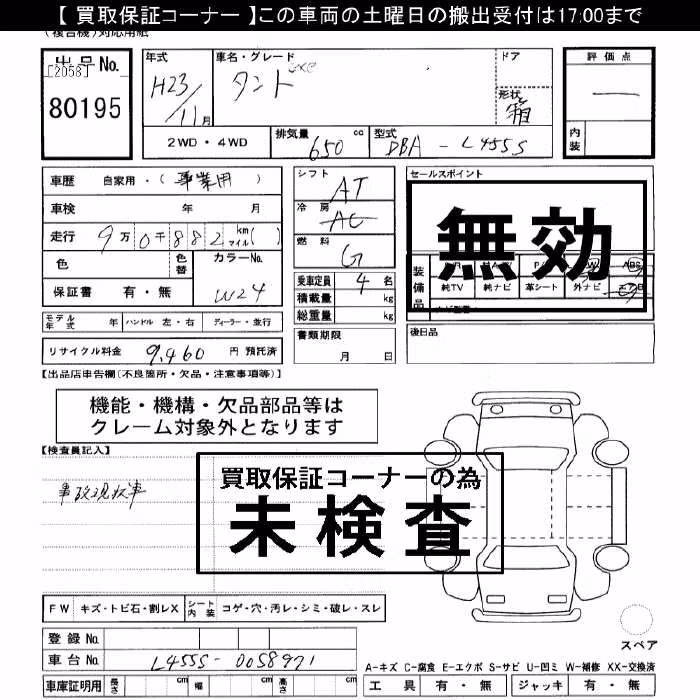 【 買取保証コーナー 】この車両の土曜日の搬出受付は17:00まで
(複合機)対応用紙
出品No.
[2058]
80195
年式
H23/11月
車名・グレード
タント
ドア
形状
箱
評価点
—
内装
2WD ・ 4WD
排気量 650 cc
型式 DBA - L455S
車歴 自家用・( 事業用 )
車検 年 月
走行 9万0千882 km マイル( )
色
色替
カラーNo.
W24
保証書 有・無
モデル年式 年 ハンドル 左・右 ディーラー・並行
リサイクル料金 9,460 円 預託済
シフト AT
冷房 AC
燃料 G
乗車定員 4 名
積載量 kg
総重量 kg
書類期限
月 日
セールスポイント
無効
装備品
純TV 純ナビ 革シート 外ナビ
ABS
後日品
【出品店申告欄(不良箇所・欠品・注意事項等)】
機能・機構・欠品部品等は
クレーム対象外となります
【検査員記入】
事故現状車
買取保証コーナーの為
未検査
FW キズ・トビ石・割レX シート内装 コゲ・穴・汚レ・シミ・破レ・スレ
登録No.
車台No. L455S-0058971
車庫証明用 長さ cm 幅 cm 高さ cm
スペア
A-キズ C-腐食 E-エクボ S-サビ U-凹ミ W-補修 XX-交換済
工具 有・無 ジャッキ 有・無